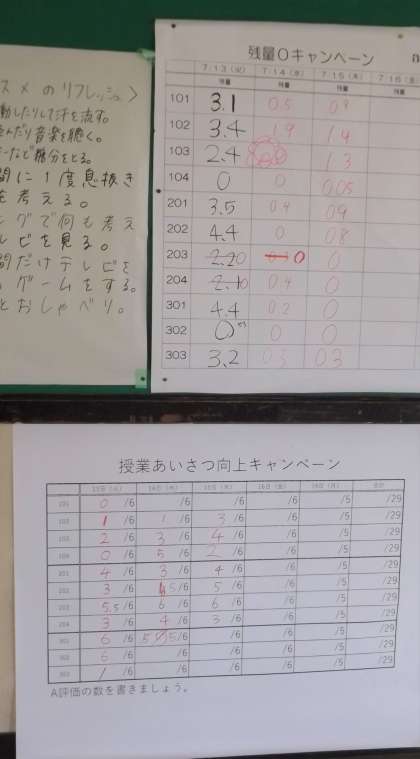 スメのリフレッシュ〉
動したりして汗を流す。
音楽を聴く。
など糖分をとる。
間に1度息抜き
を考える。
グで何も考え
レビを見る。
間だけテレビを
ゲームをする。
とおしゃべり。
残量0キャンペーン
7/13(火) 7/14(水) 7/15(木) 7/16(金)
残量 残量 残量 残量
101 3.1 0.5
102 3.4 1.9 1.4
103 2.4 1.3
104 0 0 0.05
201 3.5 0.4 0.9
202 4.4 0 0.8
203 0 0 0
204 0 0.4 0
301 4.4 0.2 0
302 0 0 0
303 3.2 0.3 0.3
授業あいさつ向上キャンペーン
101 0 /6 /6 /6 /6 /5 /29
102 1 /6 1 /6 3 /6 /6 /5 /29
103 2 /6 3 /6 4 /6 /6 /5 /29
104 0 /6 5 /6 2 /6 /6 /5 /29
201 4 /6 3 /6 4 /6 /6 /5 /29
202 3 /6 5/6 5 /6 /6 /5 /29
203 5.5 /6 6 /6 6 /6 /6 /5 /29
204 3 /6 4 /6 3 /6 /6 /5 /29
301 6 /6 5/6 /6 /6 /5 /29
302 6 /6 /6 /6 /6 /5 /29
303 /6 /6 /6 /6 /5 /29
A評価の数を書きましょう。